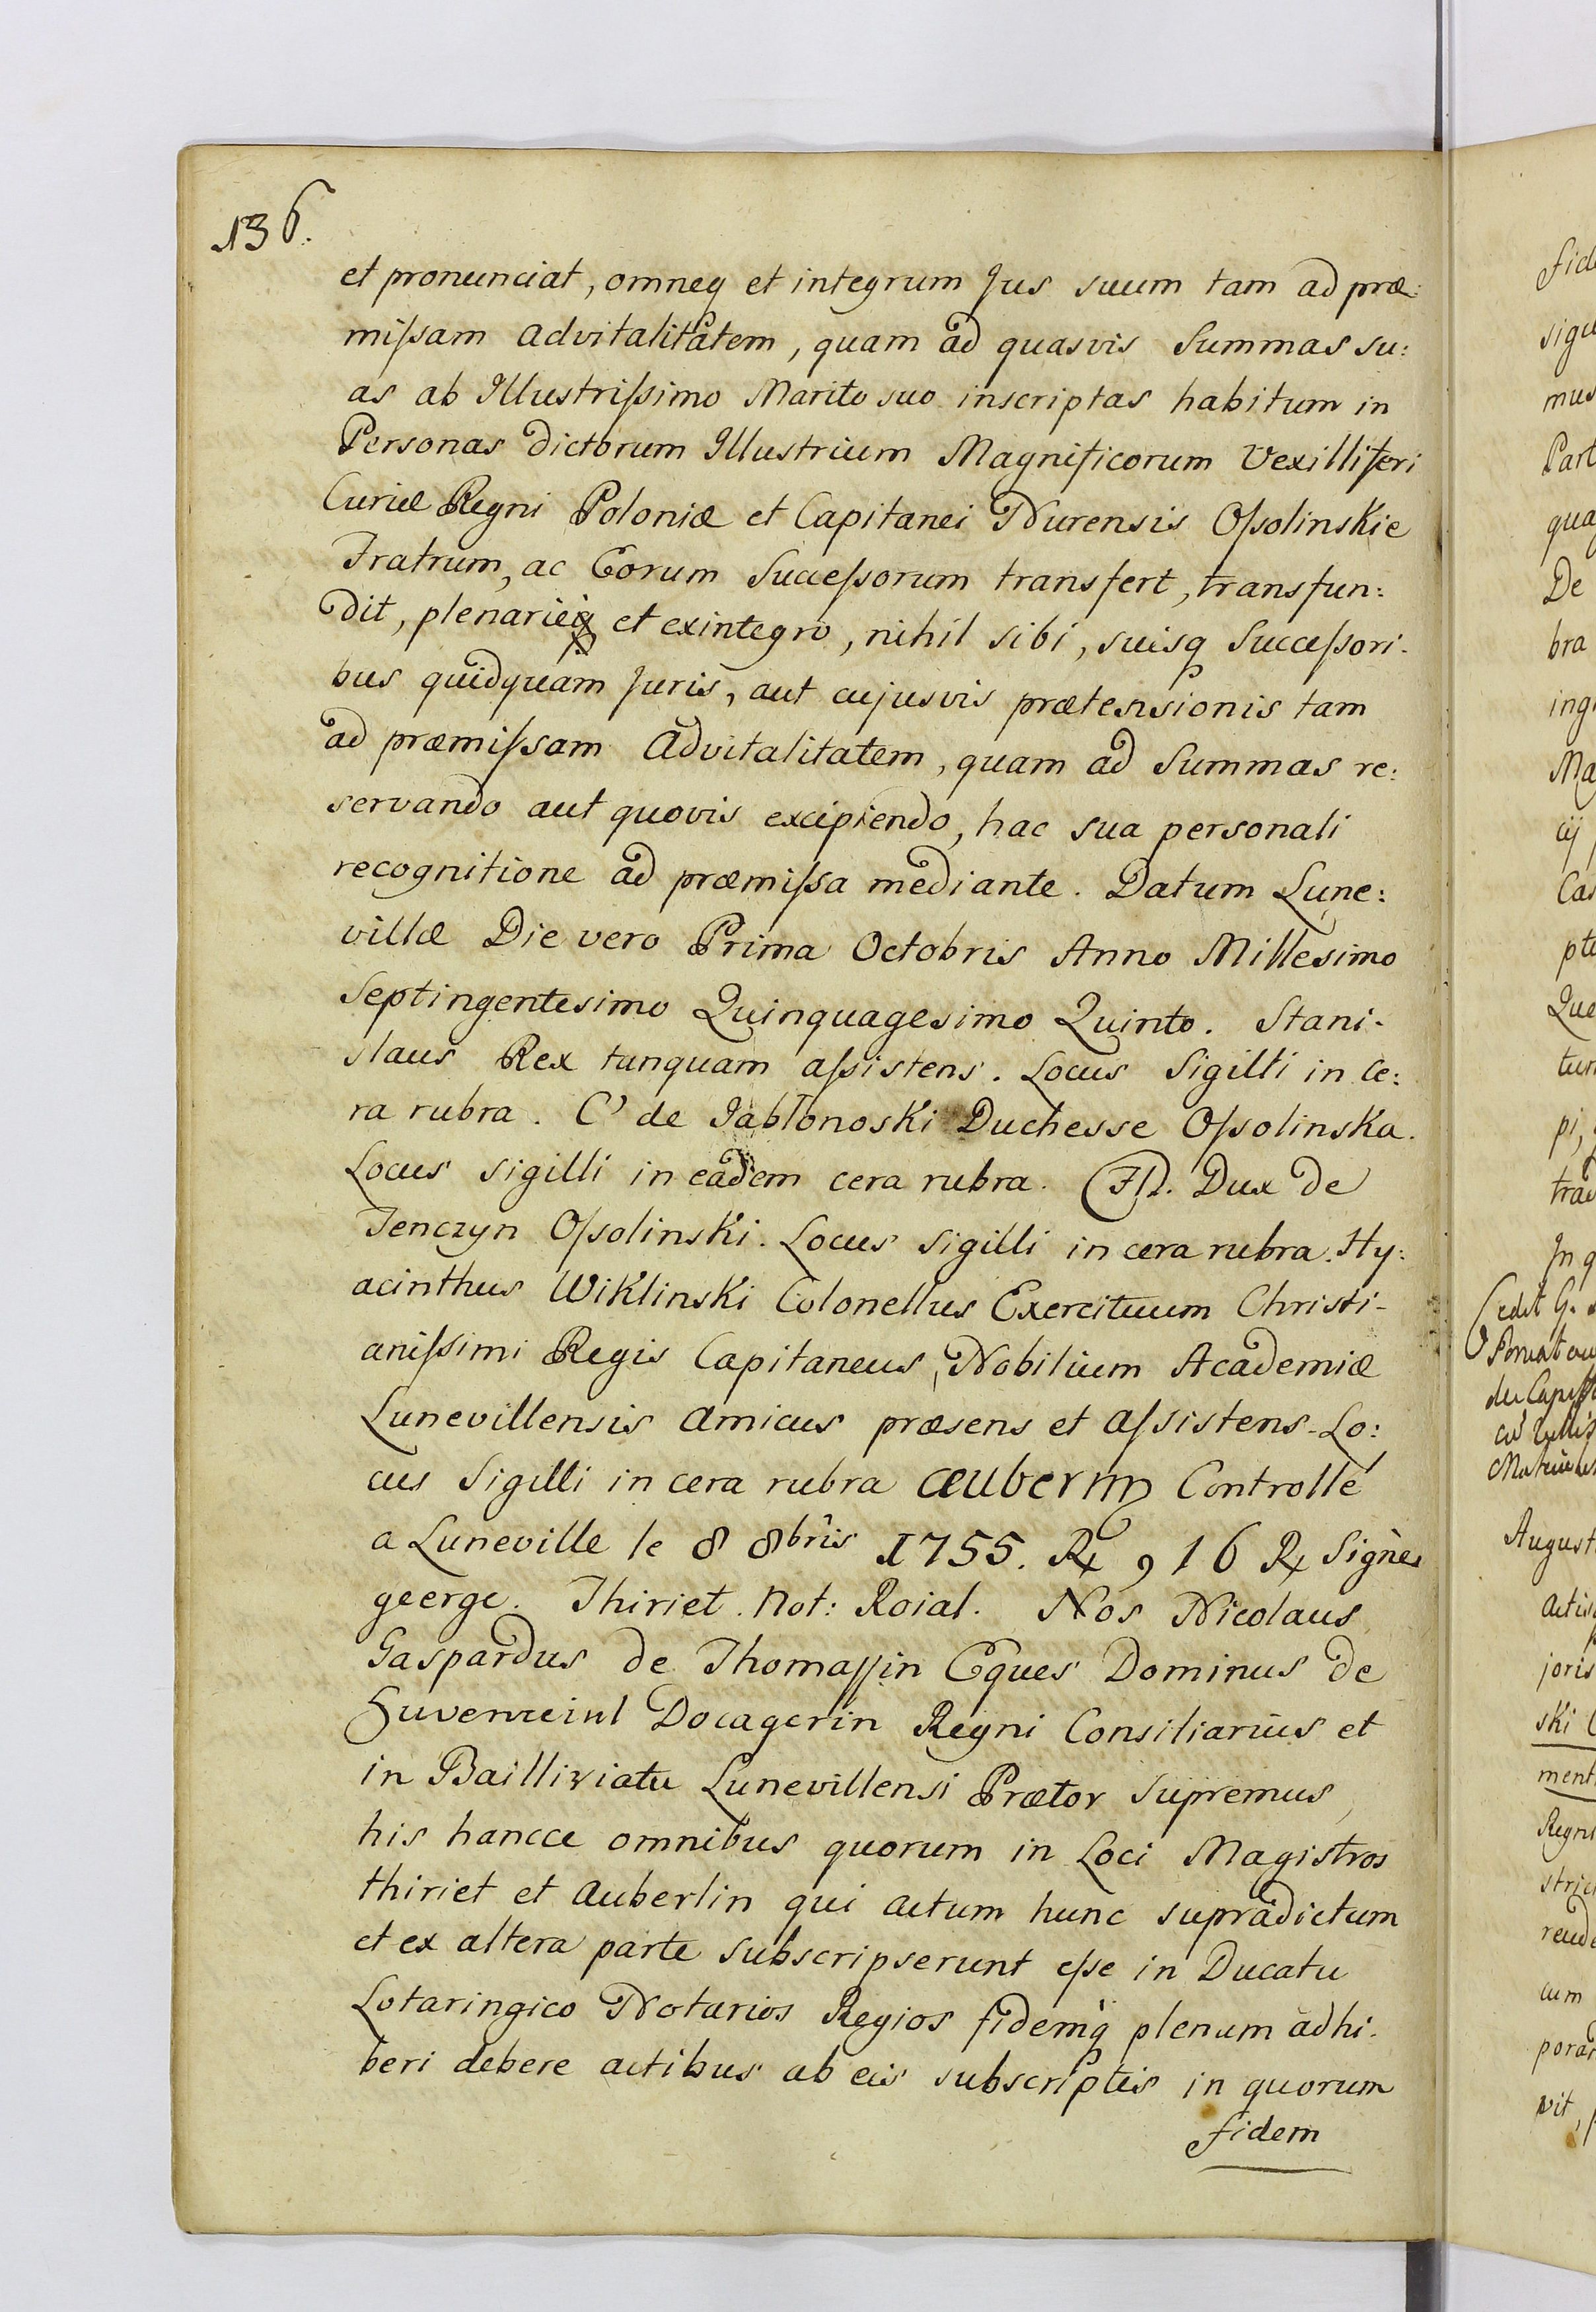 136.
et pronunciat, omneq et integrum Jus suum tam ad præ:
miſsam advitalitatem, quam ad quasvis Summas su:
as ab Illustriſsimo Marito suo inscriptas habitum in
Personas dictorum Illustrium Magnificorum Vexilliferi
Curiæ Regni Poloniæ et Capitanei Nurensis Oſsolinskie
Fratrum, ac Eorum Succeſsorum transfert, transfun:
dit, plenarieq et exintegro, nihil sibi, suisq Succeſsori-
bus quidquam Juris, aut cujusvis prætensionis tam
ad præmiſsam Advitalitatem, quam ad Summas re:
servando aut quovis excipiendo, hac sua personali
recognitione ad præmiſsa mediante. Datum Lune:
villæ Die vero Prima Octobris Anno Millesimo
Septingentesimo Quinquagesimo Quinto. Stani-
slaus Rex tanquam aſsistens. Locus Sigilli in Ce:
ra rubra. C' de Jabłonoski Duchesse Oſsolinska.
Locus sigilli in eadem cera rubra. Dux de
Tenczyn Oſsolinski. Locus sigilli in cera rubra. Hy:
acinthus Wiklinski Colonellus Exercituum Christi-
aniſsimi Regis Capitaneus, Nobilium Academiæ
Lunevillensis Amicus præsens et Aſsistens. Lo:
cus Sigilli in cera rubra Controllé
a Luneville le 8 8bris 1755. R 9 16 R Signèe
george. Thiriet. Not: Roial. Nos Nicolaus
Gaspardus de Thomaſsin Eques Dominus de
Docagerin Regni Consiliarius et
in Bailliviatu Lunevillensi Prætor Supremus,
his hancce omnibus quorum in Loci Magistros
thiriet et Auberlin qui actum hunc supradictum
et ex altera parte subscripserunt eſse in Ducatu
Lotaringico Notarios Regios fidemq plenam adhi-
beri debere actibus ab eis subscriptis in quorum
fidem